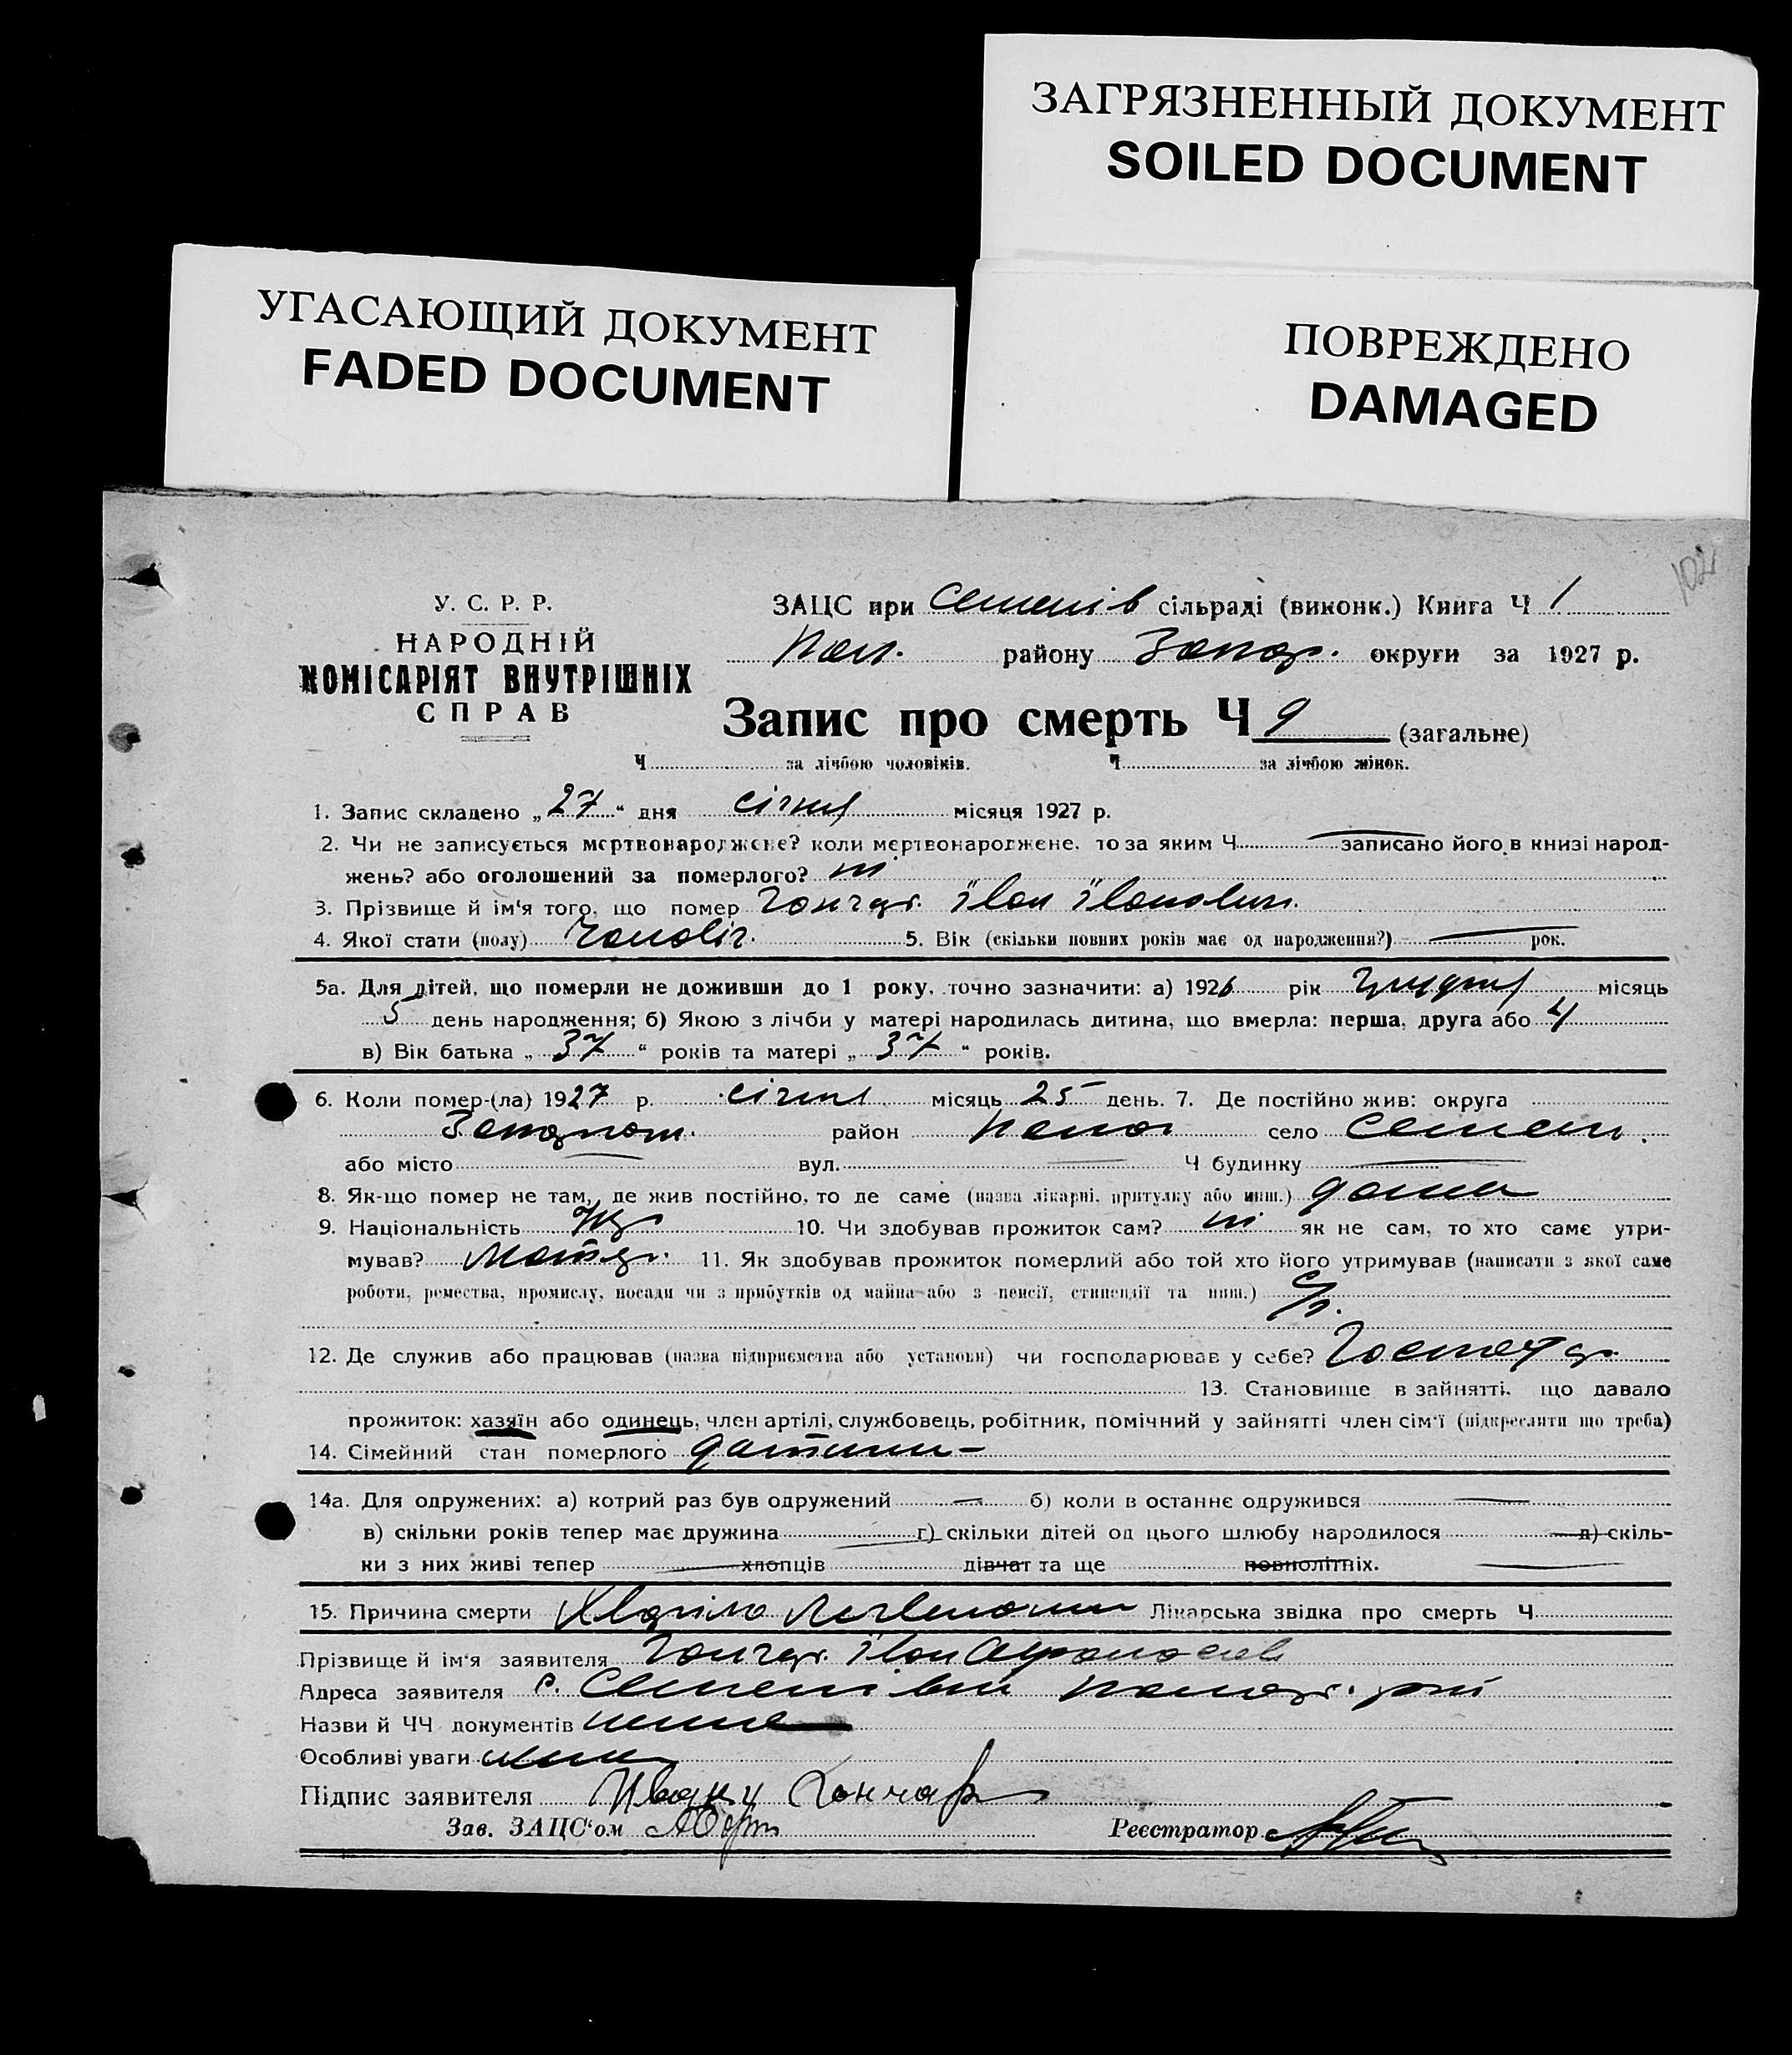 ЗАГРЯЗНЕННЫЙ ДОКУМЕНТ
SOILED DOCUMENT
УГАСАЮЩИЙ ДОКУМЕНТ
FADED DOCUMENT
ПОВРЕЖДЕНО
DAMAGED
102
У. С. Р. Р.
НАРОДНІЙ
КОМІСАРІЯТ ВНУТРІШНІХ
СПРАВ
ЗАЦС при Семенів сільраді (виконк.) Книга Ч 1
району Запор. округи за 1927 р.
Запис про смерть Ч 9 (загальне)
Ч за лічбою чоловіків. Ч за лічбою жінок.
1. Запис складено „27“ дня січня місяця 1927 р.
2. Чи не записується мертвонароджене? коли мертвонароджене, то за яким Ч записано його в книзі народ-
жень? або оголошений за померлого? ні
3. Прізвище й ім'я того, що помер Гончар. Іван Іванович.
4. Якої стати (полу) чоловіч. 5. Вік (скільки повних років має од народження?) — рок.
5а. Для дітей, що померли не доживши до 1 року, точно зазначити: а) 1926 рік грудня місяць
5 день народження; б) Якою з лічби у матері народилась дитина, що вмерла: перша, друга або 4
в) Вік батька „37“ років та матері „37“ років.
6. Коли помер-(ла) 1927 р. січня місяць 25 день. 7. Де постійно жив: округа
район село Семен.
або місто — вул. — Ч будинку —
8. Як-що помер не там, де жив постійно, то де саме (назва лікарні, притулку або инш.) дома
9. Національність Укр 10. Чи здобував прожиток сам? ні як не сам, то хто саме утри-
мував? 11. Як здобував прожиток померлий або той хто його утримував (написати з якої саме
роботи, ремества, промислу, посади чи з прибутків од майна або з пенсії, стипендії та инш.) С/г.
12. Де служив або працював (назва підприємства або установи) чи господарював у себе? Господар.
13. Становище в зайнятті, що давало
прожиток: хазяїн або одинець, член артілі, службовець, робітник, помічний у зайнятті член сім'ї (підкреслити що треба)
14. Сімейний стан померлого дитина —
14а. Для одружених: а) котрий раз був одружений — б) коли в останнє одружився —
в) скільки років тепер має дружина г) скільки дітей од цього шлюбу народилося д) скіль-
ки з них живі тепер хлопців дівчат та ще повнолітніх.
15. Причина смерти Лікарська звідка про смерть Ч
Прізвище й ім'я заявителя Гончар. Іван
Адреса заявителя с. Семенівки
Назви й ЧЧ документів нема
Особливі уваги нема
Підпис заявителя Гончар
Зав. ЗАЦС'ом Реєстратор